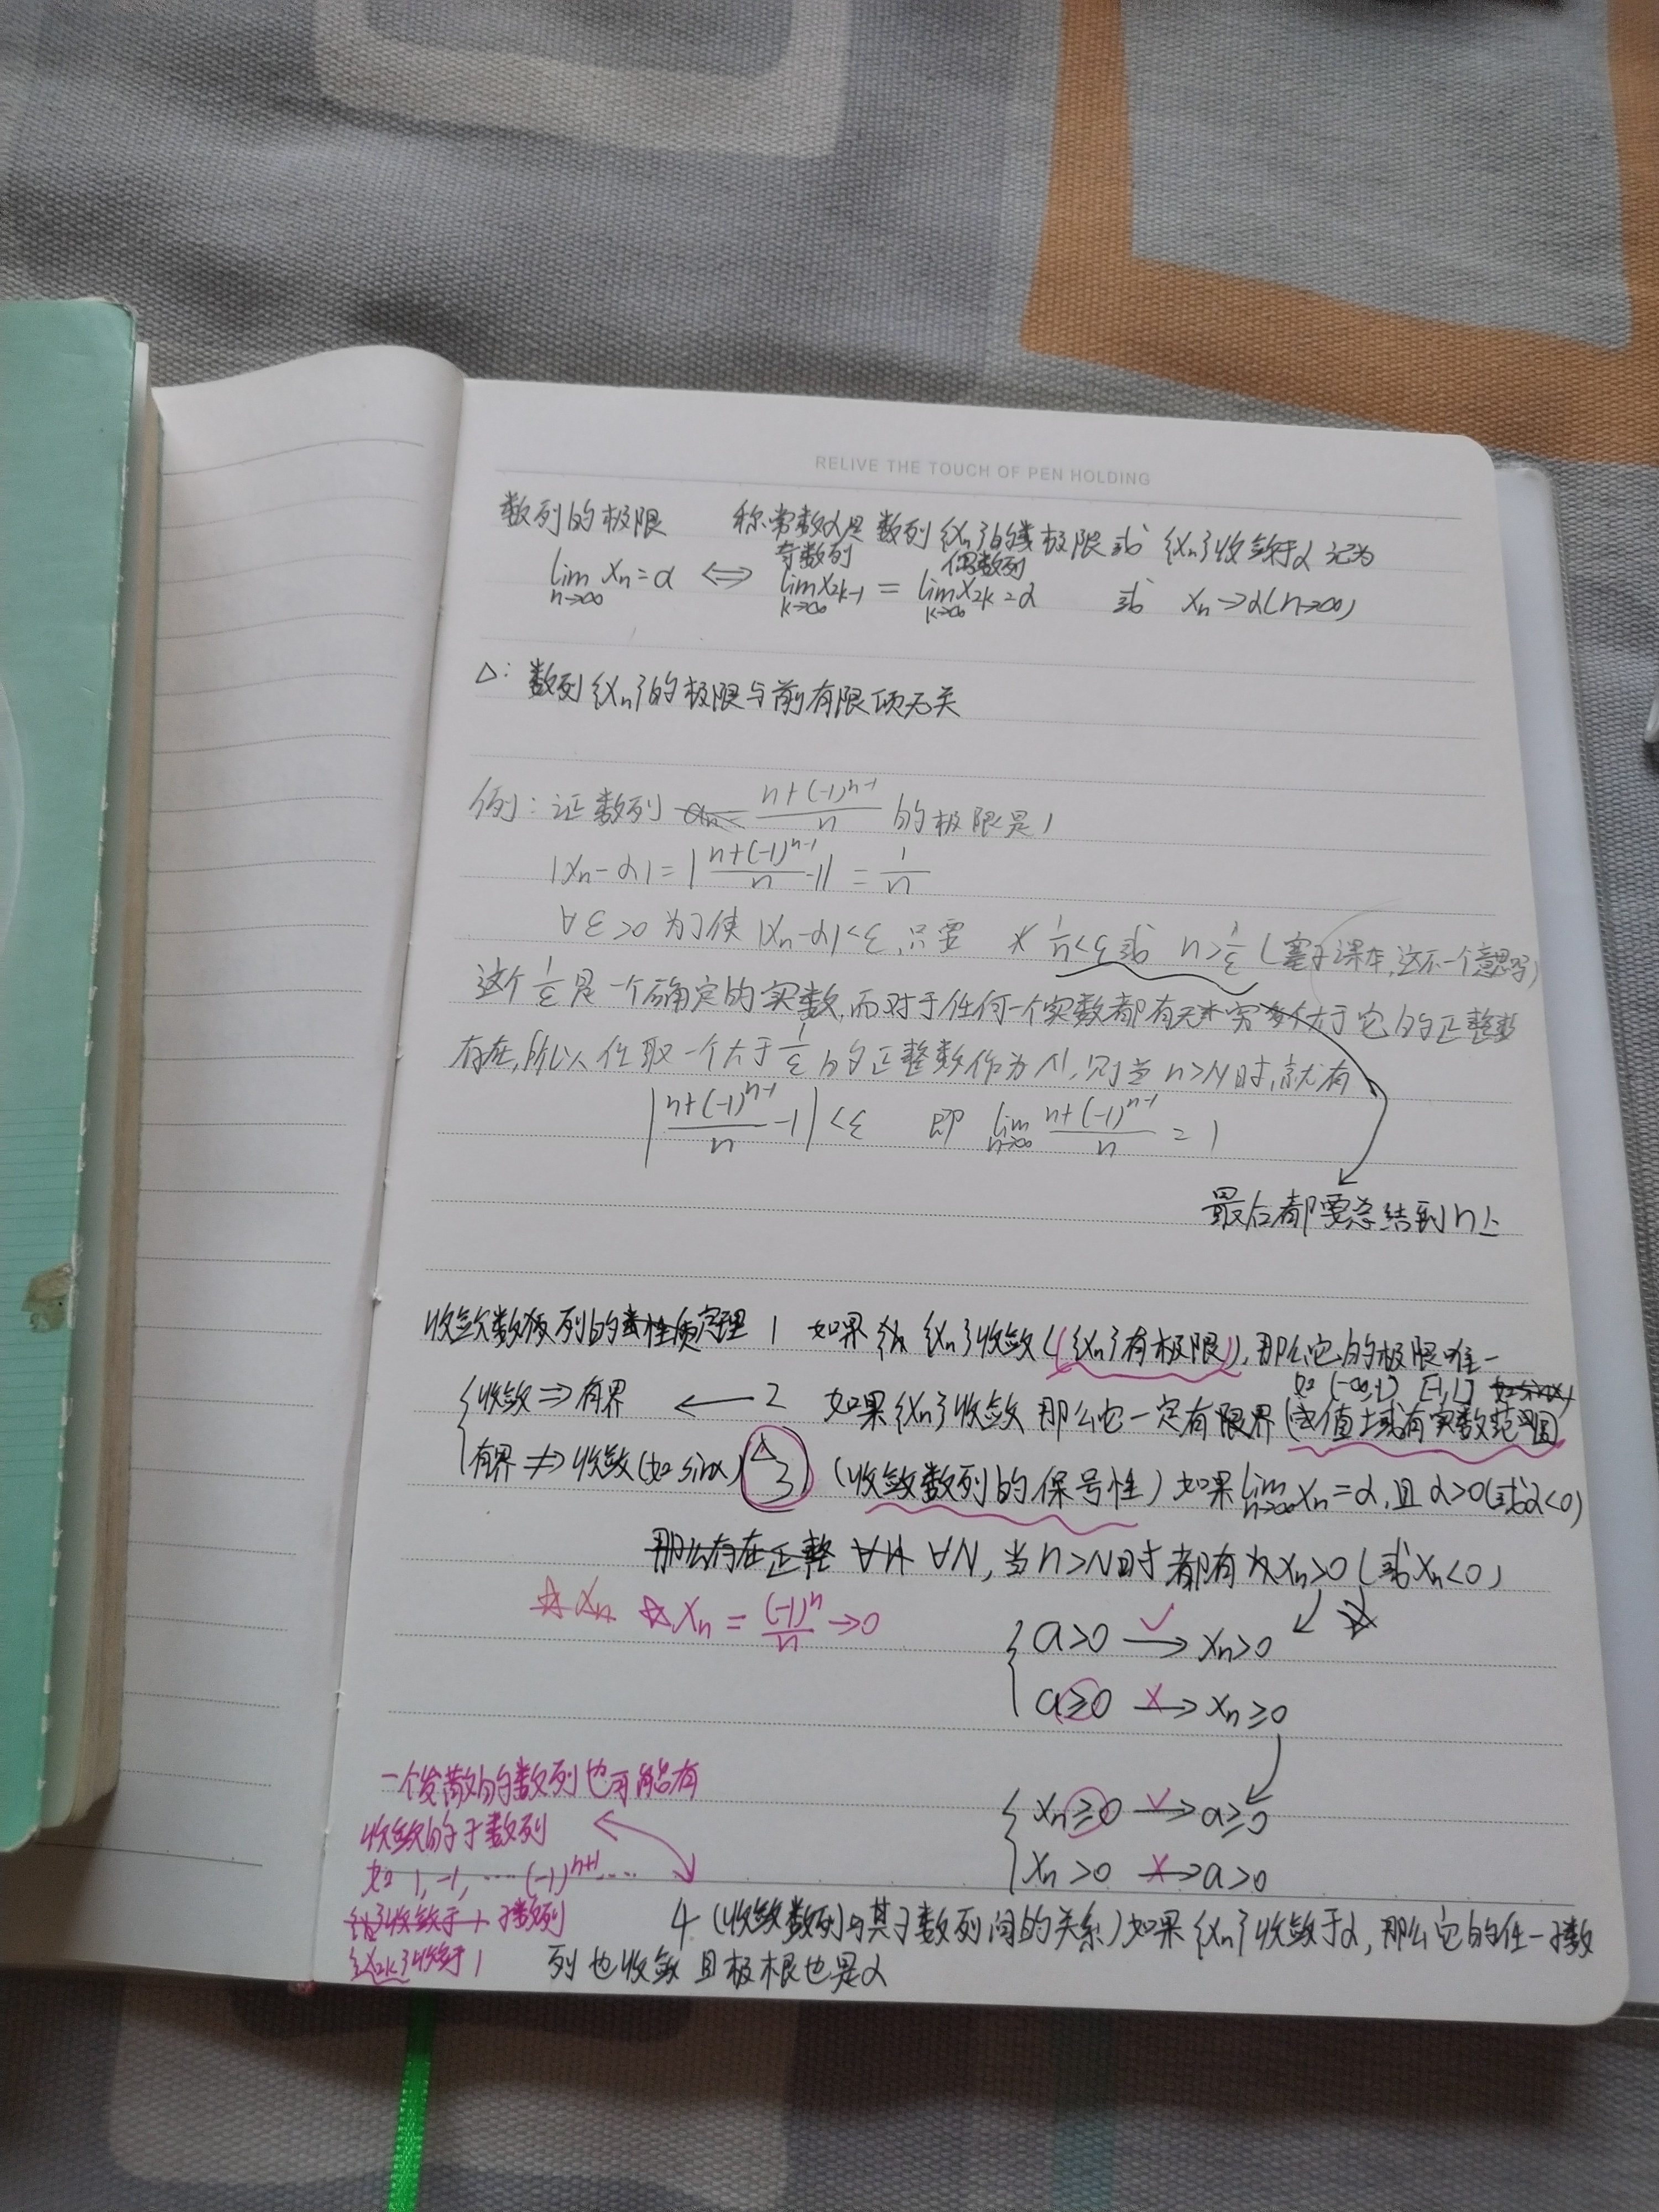 RELIVE THE TOUCH OF PEN HOLDING
数列的极限 称常数α是数列{xₙ}的极限或{xₙ}收敛于α 记为
奇数列 偶数列
lim n→∞ xₙ=α ⇔ lim k→∞ x₂ₖ₋₁ = lim k→∞ x₂ₖ=α 或 xₙ→α(n→∞)
△: 数列{xₙ}的极限与前有限项无关
例: 证数列 (n+(-1)ⁿ⁻¹)/n 的极限是1
|xₙ-α|=|(n+(-1)ⁿ⁻¹)/n -1| = 1/n
∀ε>0 为了使|xₙ-α|<ε,只要 1/n<ε或 n>1/ε (塞了课本,这不一个意思吗)
这个1/ε是一个确定的实数,而对于任何一个实数都有无穷多个大于它的正整数
存在,所以任取一个大于1/ε的正整数作为N,则当n>N时,就有
|(n+(-1)ⁿ⁻¹)/n -1|<ε 即 lim n→∞ (n+(-1)ⁿ⁻¹)/n = 1
最后都要总结到n上
收敛数列的性质定理 1 如果{xₙ}收敛({xₙ}有极限),那么它的极限唯一
如(-∞,1) [-1,1]
{收敛⇒有界 ← 2 如果{xₙ}收敛 那么它一定有限界(值域有实数范围)
有界⇏收敛(如sinx) △3 (收敛数列的保号性)如果lim n→∞ xₙ=α,且α>0(或α<0)
∀N,当n>N时都有xₙ>0(或xₙ<0)
☆xₙ = (-1)ⁿ/n →0
{a>0 ✓→ xₙ>0
a≥0 ×→ xₙ≥0
一个发散的数列也可能有
收敛的子数列
{xₙ≥0 ✓→ a≥0
xₙ>0 ×→ a>0
如 1,-1,……(-1)ⁿ⁺¹……
子数列
{x₂ₖ}收敛于1
4 (收敛数列与其子数列间的关系)如果{xₙ}收敛于α,那么它的任一子数
列也收敛 且极根也是α